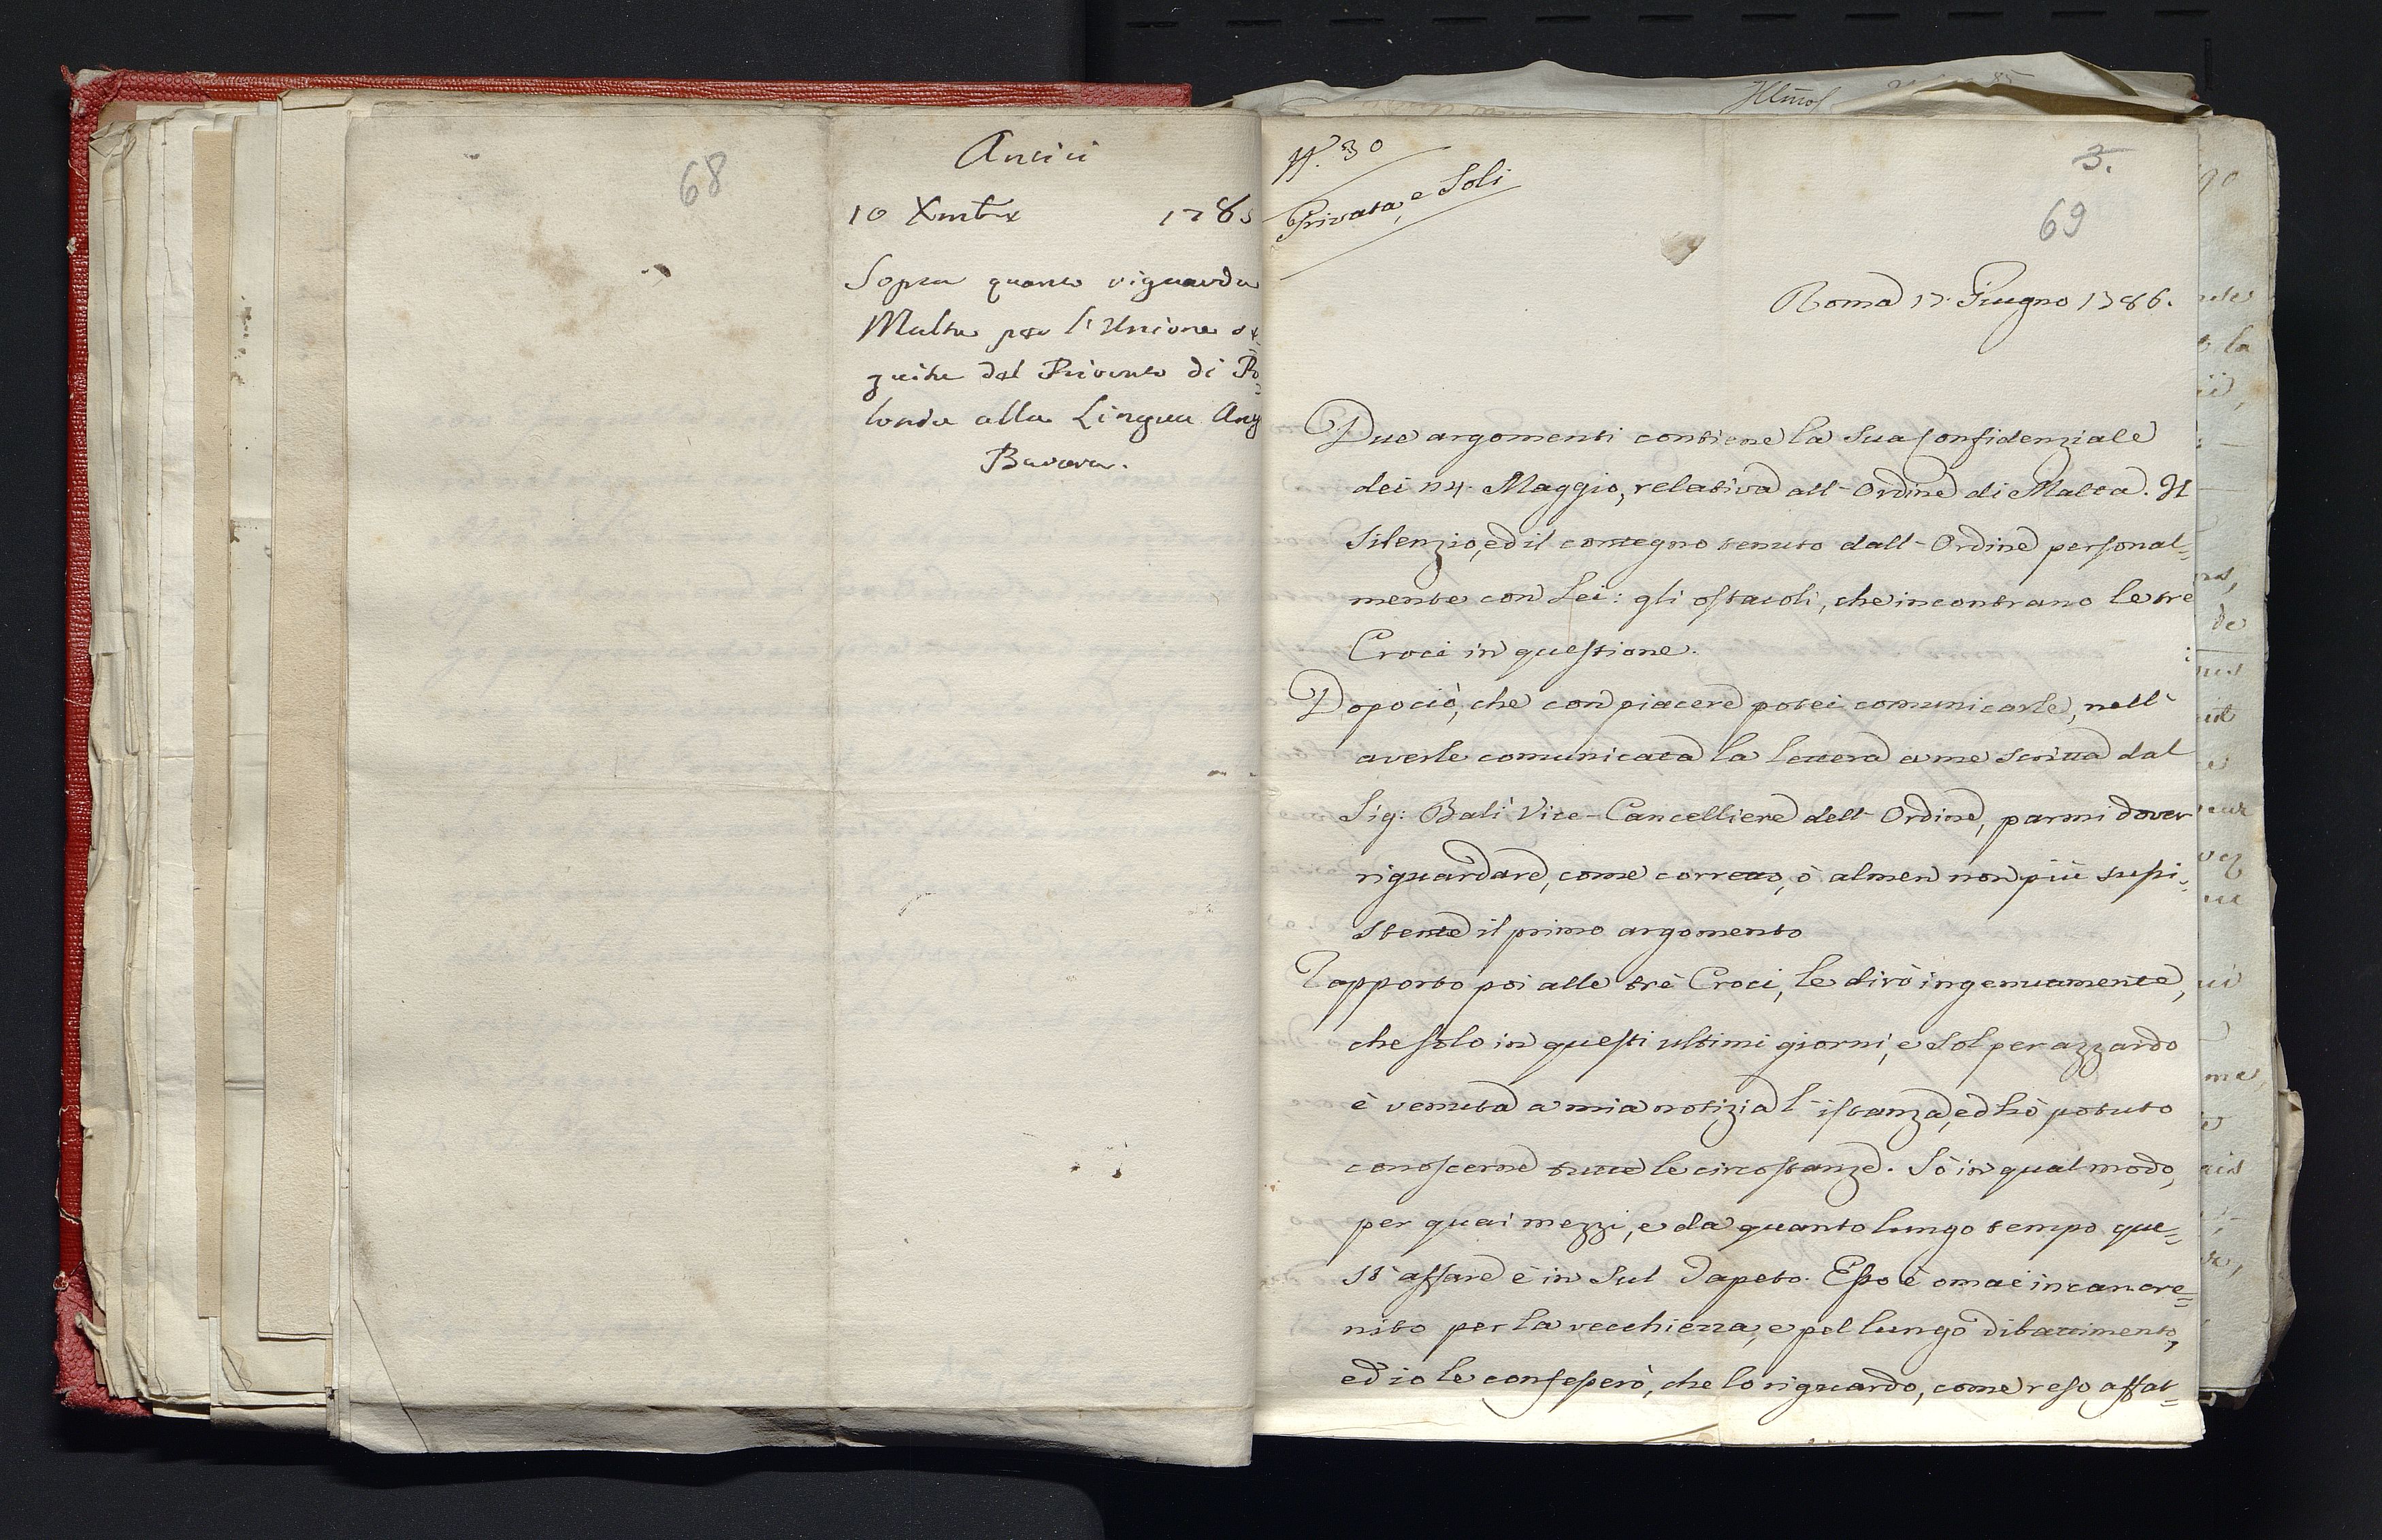 68
Antici
10 Xmbre 1785
Sopra quanto riguarda
Malta per l'Unione se-
guita del Priorato di Po-
lonia alla Lingua Ang
Bavara.
N. 30
Privata, e Soli
3.
69
Roma 17. Giugno 1786.
Due argomenti contiene la Sua Confidenziale
dei 24. Maggio, relativa all'Ordine di Malta. Il
Silenzio, ed il contegno tenuto dall'Ordine personal=
mente con Lei: gli ostacoli, che incontrano le trè
Croci in questione.
Dopo ciò, che con piacere potei comunicarle, nell'
averle comunicata la lettera a me scritta dal
Sig: Balì Vice-Cancelliere dell'Ordine, parmi dover
riguardare, come corretto, ò almen non più sussi=
stente il primo argomento
Rapporto poi alle trè Croci, le dirò ingenuamente,
che solo in questi ultimi giorni, e Sol per azzardo
è venuta a mia notizia l'istanza, ed hò potuto
conoscerne tutte le circostanze. Sò in qual modo,
per quai mezzi, e da quanto lungo tempo que=
st'affare è in Sul Tapeto. Esso è omai incancre=
nito per la vecchiezza, e pel lungo dibattimento,
ed io le confesserò, che lo riguardo, come reso affat=